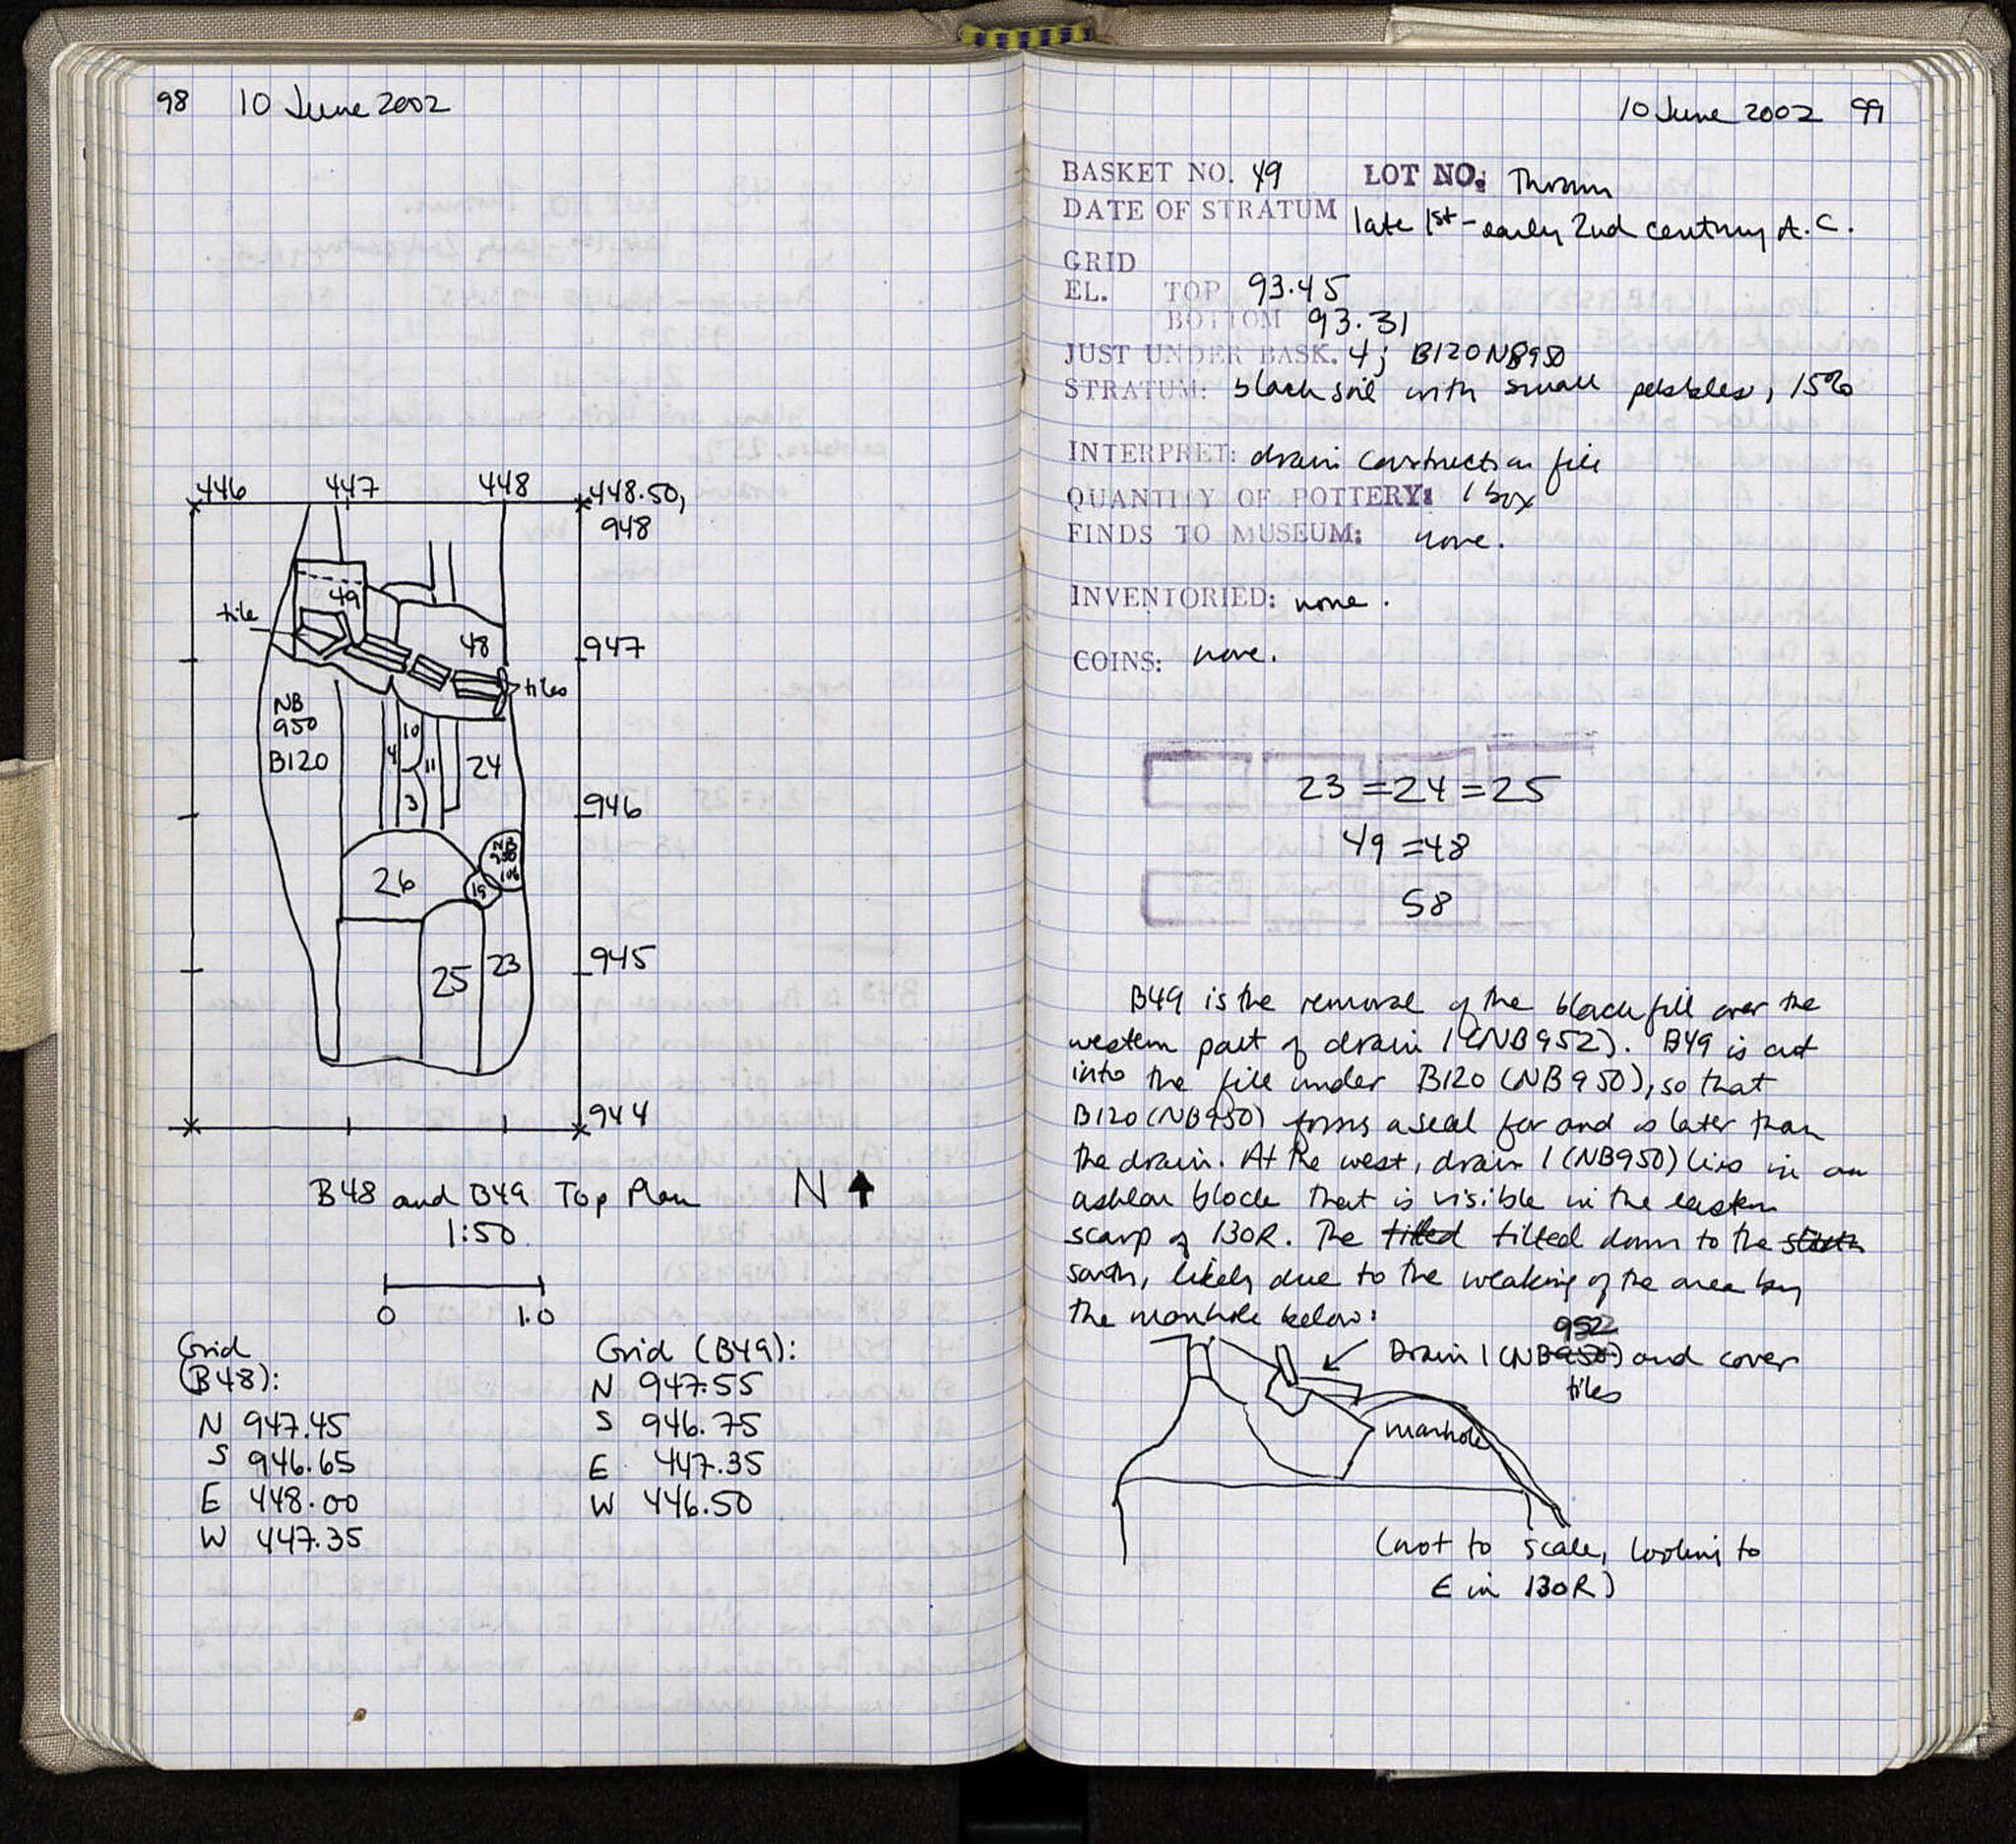 98 10 June 2002
446 447 448 448.50,
948
tile
49
48
947
tiles
NB
950
B120
10
4
11
24
3
946
NB
950
106
19
26
25
23
945
944
B48 and B49 Top Plan N
1:50
0 1.0
Grid
(B48):
N 947.45
S 946.65
E 448.00
W 447.35
Grid (B49):
N 947.55
S 946.75
E 447.35
W 446.50
10 June 2002 99
BASKET NO. 49 LOT NO: Thrown
DATE OF STRATUM late 1st - early 2nd century A.C.
GRID
EL. TOP 93.45
BOTTOM 93.31
JUST UNDER BASK. 4; B120 NB950
STRATUM: black soil with small pebbles, 15%
INTERPRET: drain construction fill
QUANTITY OF POTTERY: 1 box
FINDS TO MUSEUM: none.
INVENTORIED: none.
COINS: none.
23 = 24 = 25
49 = 48
58
B49 is the removal of the black fill over the
western part of drain 1 (NB952). B49 is cut
into the fill under B120 (NB950), so that
B120 (NB950) forms a seal for and is later than
the drain. At the west, drain 1 (NB950) lies in an
ashlar block that is visible in the eastern
scarp of 130R. The tilted tilted down to the south
south, likely due to the weaking of the area by
the manhole below:
952
Drain 1 (NB950) and cover
tiles
manhole
(not to scale, looking to
E in 130R)